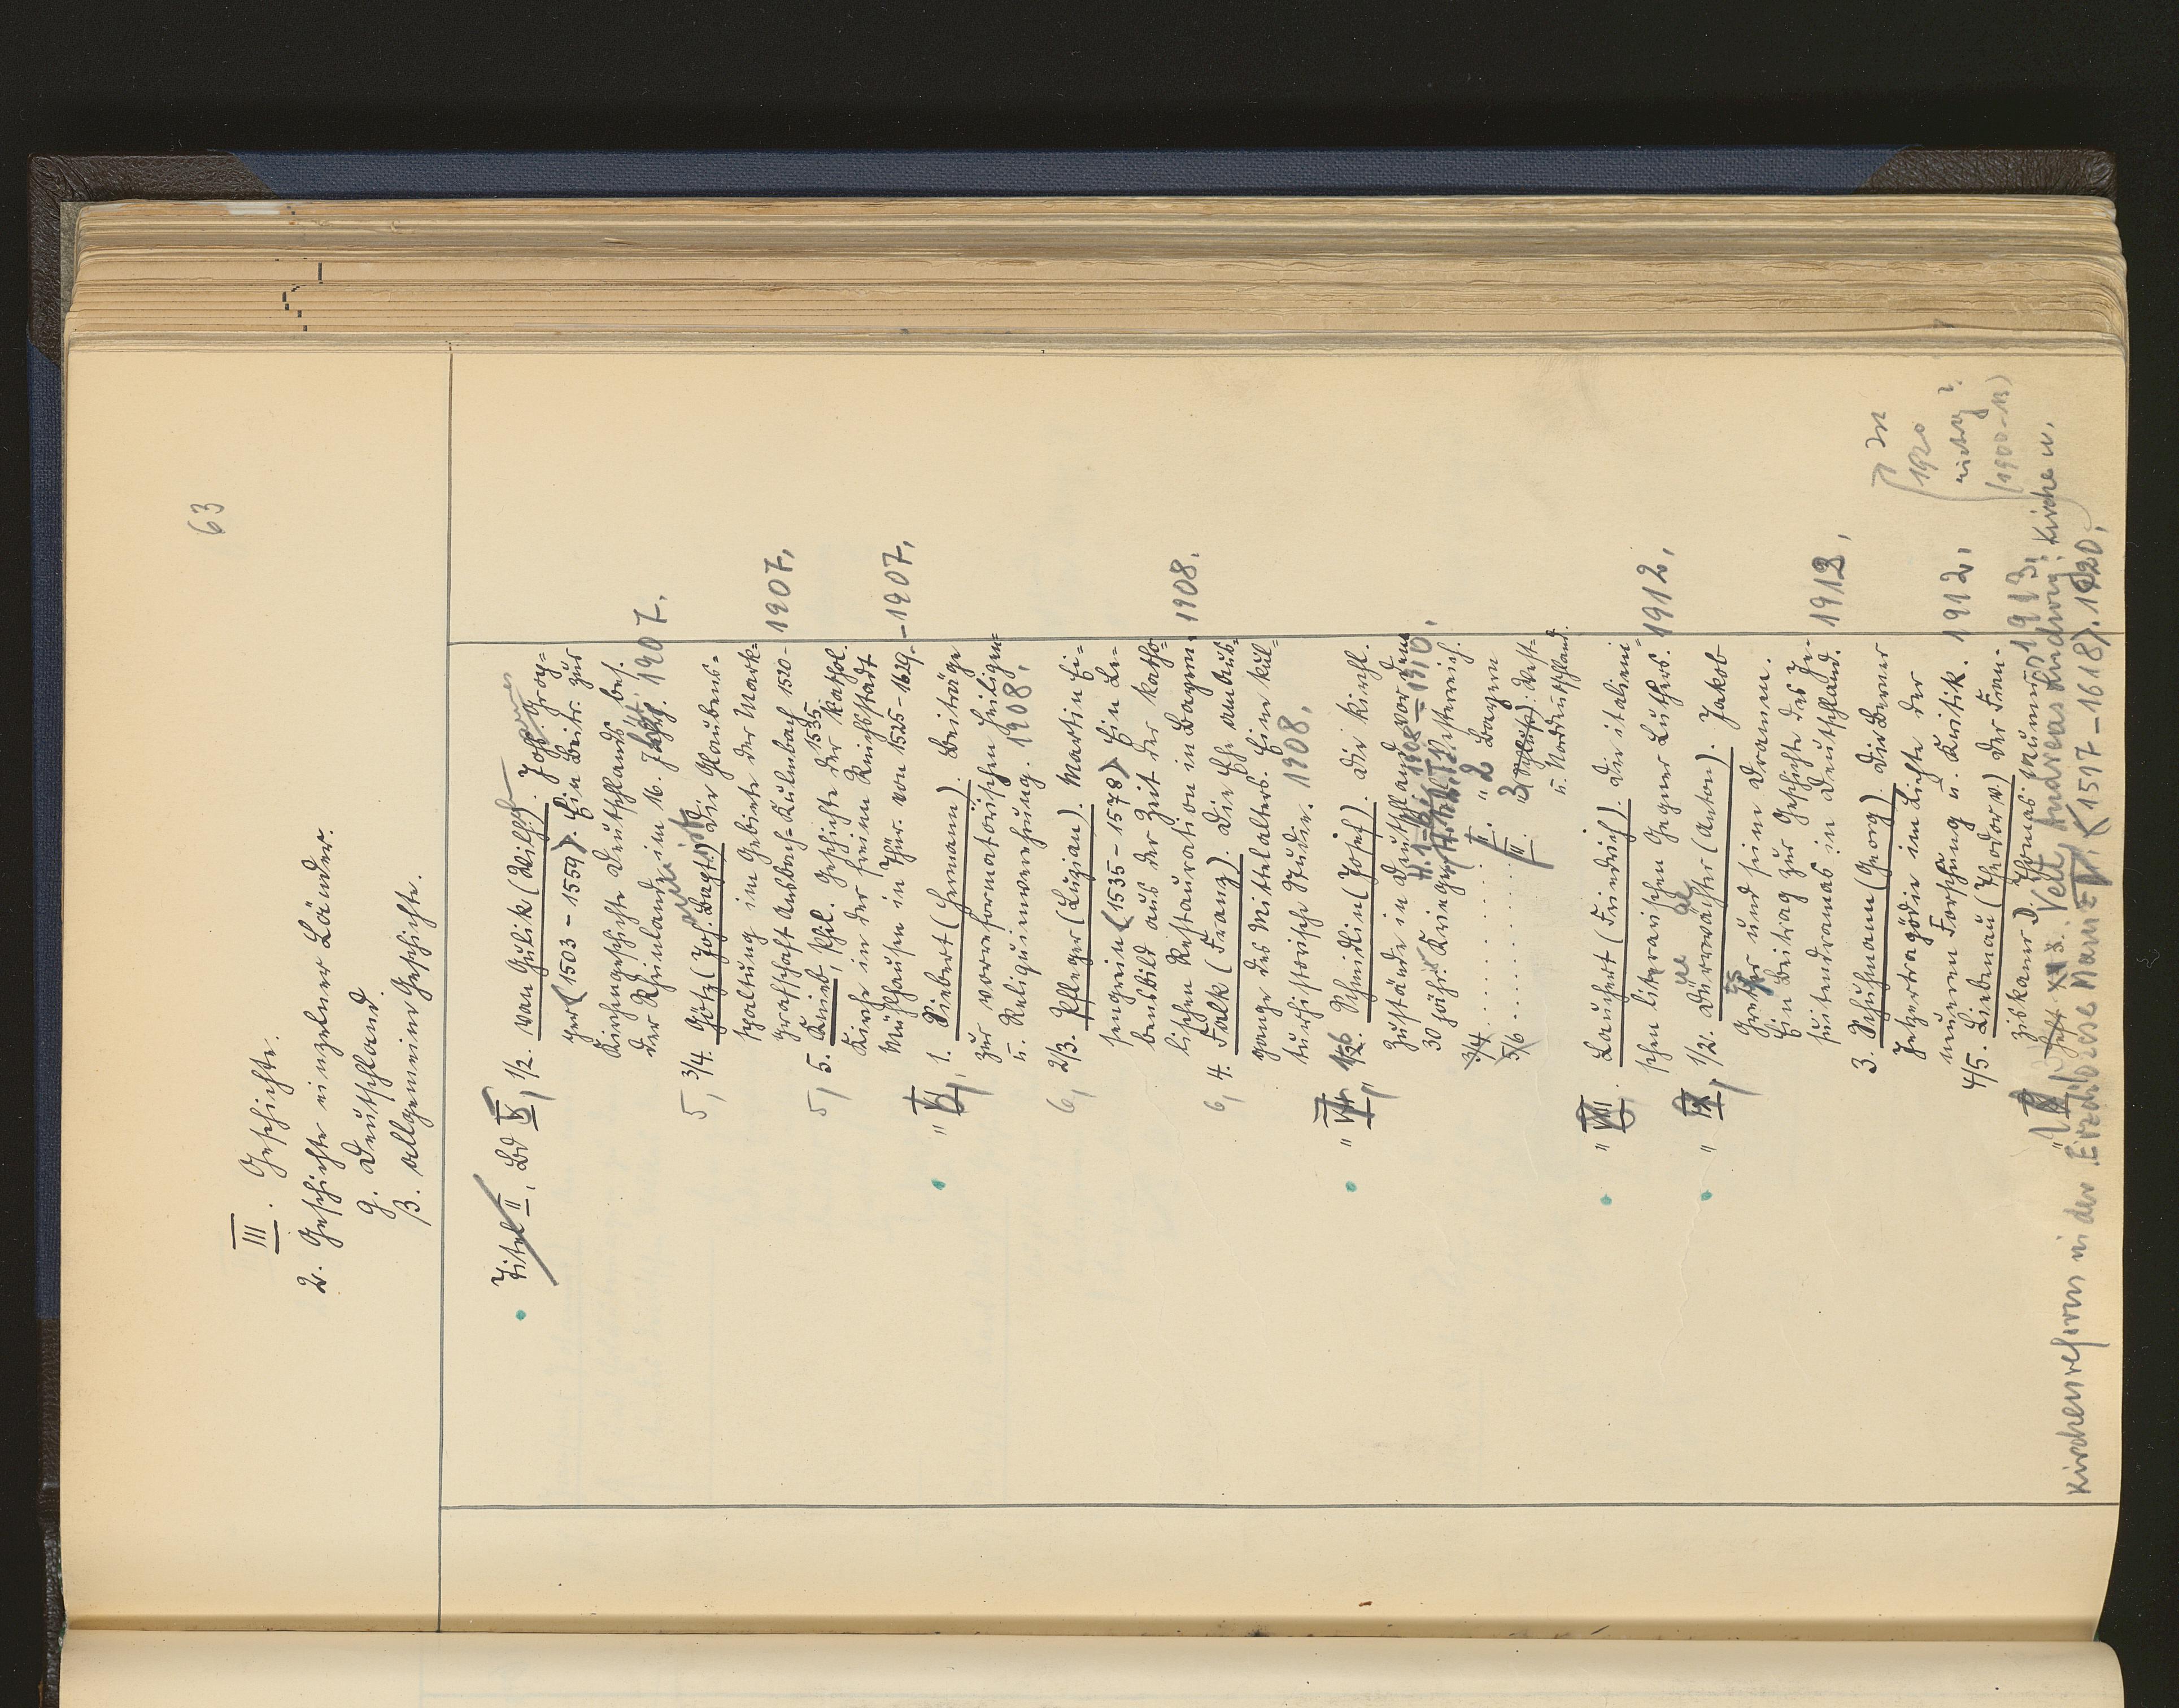 63
III. Geschichte.
2. Geschichte einzelner Länder.
g. Deutschland.
β. Allgemeine Geschichte.
Titel II, Bd V, 1/2. van Gulik (Wilh.). Joh. Grop-
per (1503-1559). Ein Beitr. zur
Kirchengeschichte Deutschlands bes.
der Rheinlande im 16. Jahrh. 1907.
5, 3/4. Götz (Joh. Bapt.) Die Glaubens-
spaltung im Gebiete der Mark-
grafschaft Ansbach-Kulmbach 1520-
1535 1907.
5, 5. Knieb, Phil. Geschichte der kathol.
Kirche in der freien Reichsstadt
Mühlhausen in Thür. von 1525-1629. 1907.
" VI, 1. Siebert (Hermann). Beiträge
zur vorreformatorischen Heiligen-
u. Reliquienverehrung. 1908.
6, 2/3. Pfleger (Luzian). Martin Ei-
sengrein (1535-1578) Ein Le-
bensbild aus der Zeit der katho-
lischen Restauration in Bayern. 1908.
6, 4. Falk (Franz). Die Ehe am Aus-
gange des Mittelalters. Eine kul-
turhistorische Studie. 1908.
" VII, 1/2. Schmidlin (Josef). Die kirchl.
Zustände in Deutschland vor dem
30 jähr. Kriege Österreich.
3/4 . . . . . . . II. " 2 Bayern
5/6 . . . . . . . III. 3 (Schluß): West-
u. Norddeutschland.
" VIII. Lauchert (Friedrich). Die italieni-
schen literarischen Gegner Luthers. 1912.
" IX, 1/2. Dürrwächter (Anton). Jakob
Gretser und seine Dramen.
Ein Beitrag zur Geschichte des Je-
suitendramas in Deutschland. 1912.
3. Schuhmann (Georg). Die Berner
Jetzertragödie im Lichte der
neueren Forschung u. Kritik. 1912.
4/5. Liebenau (Theodor v.) Der Fran-
ziskaner D. Thomas Murner, 1913.
Veit, Andreas Ludwig: Kirche u.
Kirchenreform in der Erzdiözese Mainz (1517-1618). 1920.
1920
(1900-13)